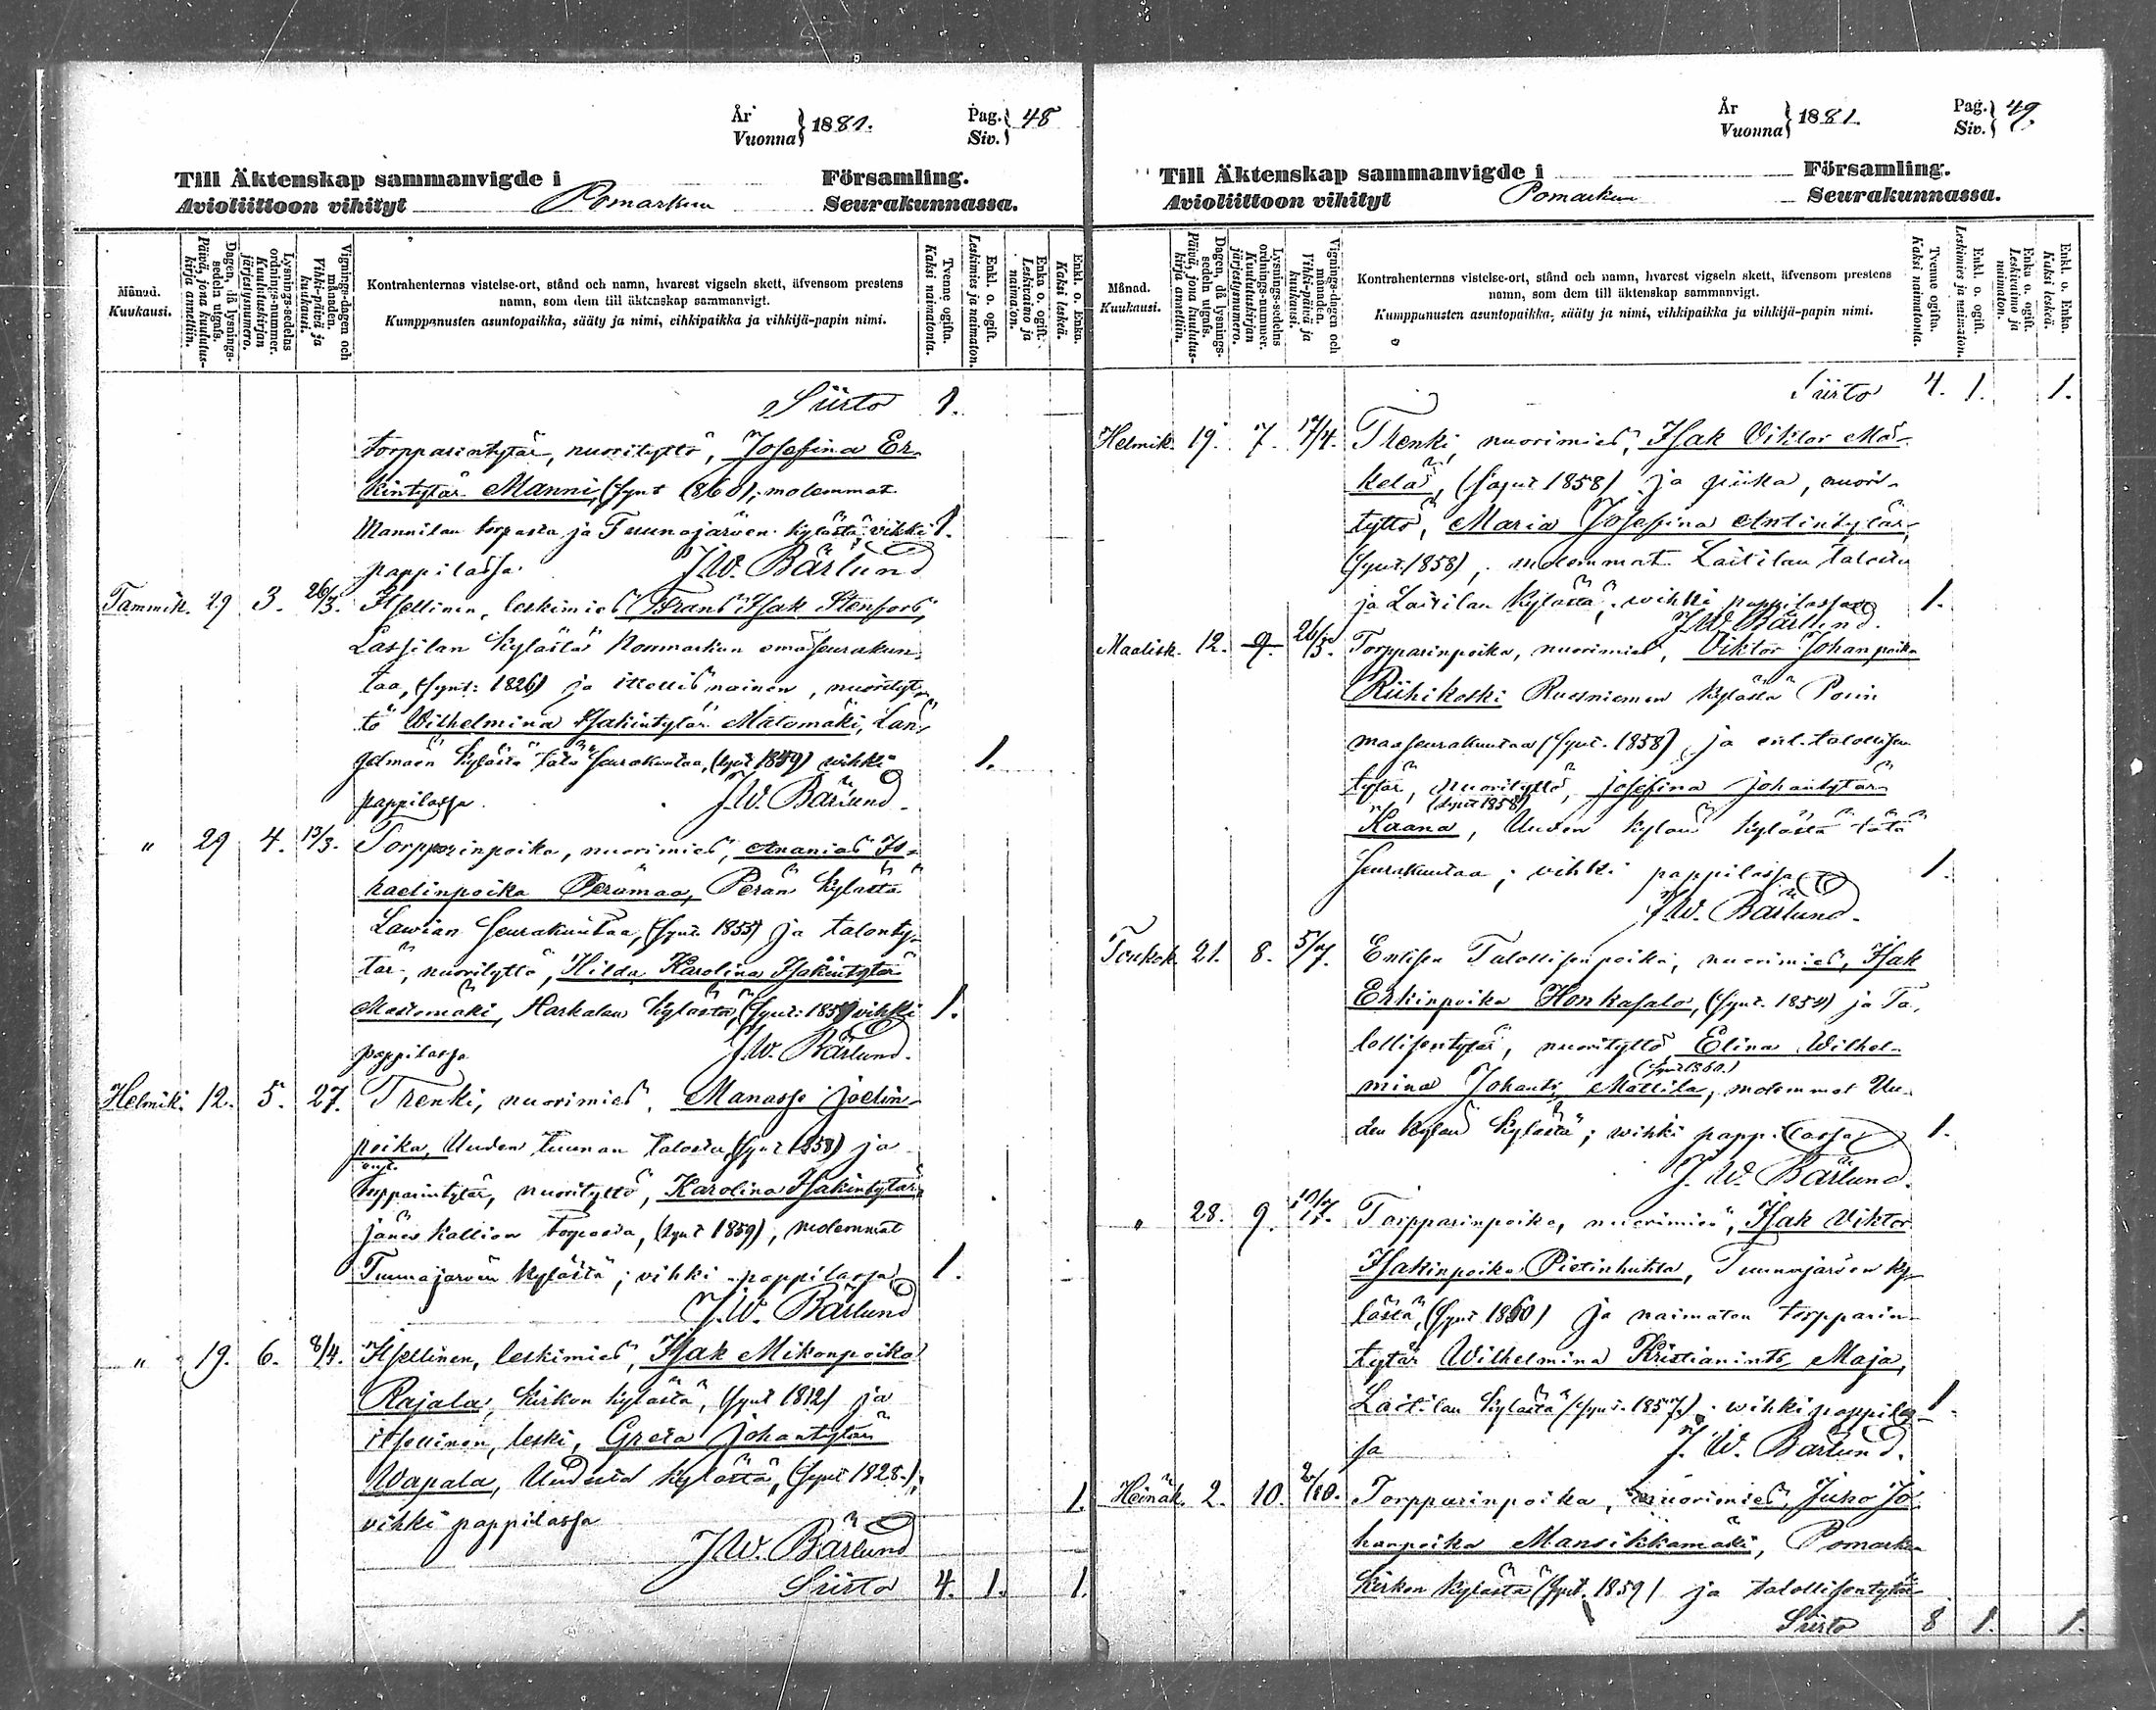 År
Vuonna } 1881.
Pag.
Siv. } 48
Till Äktenskap sammanvigde i Församling.
Avioliittoon vihityt Pomarkun Seurakunnassa.
Månad.
Kuukausi.
Dagen, då lysnings-
sedeln utgafs.
Päivä, jona kuulutus-
kirja annettiin.
Lysnings-sedelns
ordnings-nummer.
Kuulutuskirjan
järjestysnumero.
Vignings-dagen och
månaden.
Vihki-päivä ja
kuukausi.
Kontrahenternas vistelse-ort, stånd och namn, hvarest vigseln skett, äfvensom prestens
namn, som dem till äktenskap sammanvigt.
Kumppanusten asuntopaikka, sääty ja nimi, vihkipaikka ja vihkijä-papin nimi.
Tvenne ogifta.
Kaksi naimatonta.
Enkl. o. ogift.
Leskimies ja naimaton.
Enka o. ogift.
Leskivaimo ja
naimaton.
Enkl. o. Enka.
Kaksi leskeä.
Siirto 1.
torpparintytär, nuorityttö, Josefina Er-
kintytär Manni, (synt 1860); molemmat
Mannilan torpasta ja Tuunajärven kylästä; vihki 1.
pappilassa. J.W. Bärlund
Tammik. 29 3. 26/3. Itsellinen, leskimies Frans Isak Stenfors,
Lassilan kylästä Normarkun emäseurakun-
taa, (synt: 1826) ja itsellisnainen, nuorityt-
tö Wilhelmina Isakintytär Mätömäki, Lan-
gelmaen kylästä tätä seurakuntaa, (synt 1849) vihki 1.
pappilassa. J.W. Bärlund.
" 29 4. 13/3. Torpparinpoika, nuorimies, Ananias Is-
raelinpoika Perämaa, Perän kylästä
Lawian seurakuntaa, (synt. 1855) ja talonty-
tär, nuorityttö, Hilda Karolina Isakintytär
Mätömäki, Harhalan kylästä, (synt: 1859) vihki 1.
pappilassa J.W. Bärlund.
Helmik. 12. 5. 27. Trenki, nuorimies, Manasse Joelin-
poika, Uuden Tuunan talosta, (synt 1858) ja
torpparintytär, nuorityttö, Karolina Isakintytär
Jänes kallion torpasta, (synt 1859), molemmat
Tuunajärven kylästä; vihki pappilassa 1.
J.W. Bärlund
" 19. 6. 8/4. Itsellinen, leskimies, Isak Mikonpoika
Rajala, Kirkon kylästä, (synt 1812) ja
itsellinen, leski, Greta Johantytär
Wapala, Uudesta kylästä, (synt 1828.); 1.
vihki pappilassa
J.W. Bärlund
Siirto 4. 1. 1.
År
Vuonna } 1881.
Pag.
Siv. } 49.
Till Äktenskap sammanvigde i Församling.
Avioliittoon vihityt Pomarkun Seurakunnassa.
Månad.
Kuukausi.
Dagen, då lysnings-
sedeln utgafs.
Päivä, jona kuulutus-
kirja annettiin.
Lysnings-sedelns
ordnings-nummer.
Kuulutuskirjan
järjestysnumero.
Vignings-dagen och
månaden.
Vihki-päivä ja
kuukausi.
Kontrahenternas vistelse-ort, stånd och namn, hvarest vigseln skett, äfvensom prestens
namn, som dem till äktenskap sammanvigt.
Kumppanusten asuntopaikka, sääty ja nimi, vihkipaikka ja vihkijä-papin nimi.
Tvenne ogifta.
Kaksi naimatonta.
Enkl. o. ogift.
Leskimies ja naimaton.
Enka o. ogift.
Leskivaimo ja
naimaton.
Enkl. o. Enka.
Kaksi leskeä.
Siirto 4. 1. 1.
Helmik. 19. 7. 17/4. Trenki, nuorimies, Isak Viktor Mä-
kelä, (synt 1858) ja piika, nuori-
tyttö, Maria Josefina Antintytär,
(synt. 1858), molemmat Laitilan talosta
ja Laitilan kylästä; wihki pappilassa 1.
J.W. Bärlund.
Maalisk. 12. 9. 26/5. Torpparinpoika, nuorimies, Viktor Johanpoika
Riihikoski Ruosniemen kylästä Porin
maaseurakuntaa (synt. 1858), ja ent. talollisen
tytär, nuorityttö, Josefina Johantytär
(synt 1858)
Kaana, Uuden kylän kylästä tätä
seurakuntaa; vihki pappilassa 1.
J.W. Bärlund.
Toukok. 21. 8. 5/7. Entisen Talollisenpoika, nuorimies, Isak
Erkinpoika Honkasalo, (synt. 1854) ja Ta-
lollisentytär, nuorityttö, Elina Wilhel-
(synt 1860.)
mina Johants Mattila, molemmat Uu-
den kylän kylästä; wihki pappilassa 1.
J.W. Bärlund.
" 28. 9. Torpparinpoika, nuorimies, Isak Viktor
Isakinpoika Pietinhuhta, Tuunajärven ky-
lästä, (synt 1860) ja naimaton torpparin-
tytär Wilhelmina Kristianints Maja,
Laitilan kylästä (synt. 1857.); wihki pappilas- 1.
sa J.W. Bärlund.
Heinäk. 2. 10. 2/10. Torpparinpoika, nuorimies, Juho Jo-
hanpoika Mansikkamäki, Pomarkun
Kirkon kylästä (synt. 1859) ja talollisentytär
Siirto 8 1. 1.